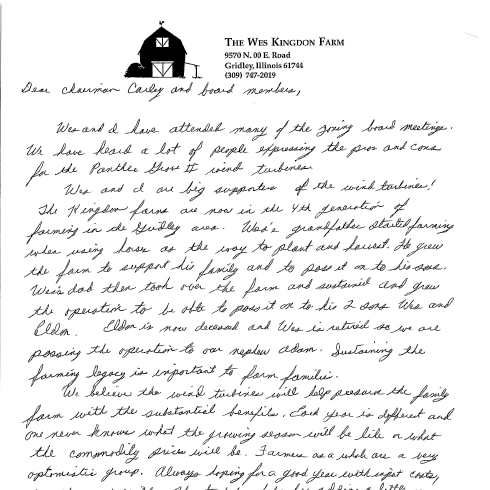 THE WES KINGDON FARM
9570 N. 00 E. Road
Gridley, Illinois 61744
(309) 747-2019
Dear Chairman Carley and board members,
Wes and I have attended many of the zoning board meetings.
We have heard a lot of people expressing the pros and cons
for the Panther Grove II wind turbines.
Wes and I are big supporters of the wind turbines!
The Kingdon farms are now in the 4th generation of
farming in the Gridley area. Wes's grandfather started farming
when using horse as the way to plant and harvest. He grew
the farm to support his family and to pass it on to his sons.
Wes's dad then took over the farm and sustained and grew
the operation to be able to pass it on to his 2 sons Wes and
Eldon. Eldon is now deceased and Wes is retired so we are
passing the operation to our nephew Adam. Sustaining the
farming legacy is important to farm families.
We believe the wind turbines will help preserve the family
farm with the substantial benefits. Each year is different and
one never knows what the growing season will be like or what
the commodity prices will be. Farmers as a whole are a very
optomistic group. Always hoping for a good year with input costs,